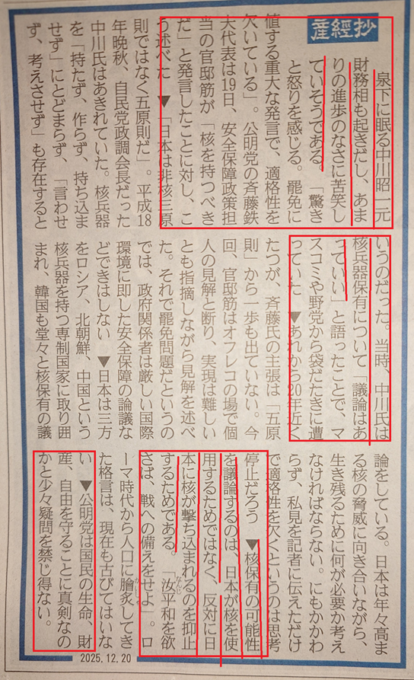 産經抄
泉下に眠る中川昭一元
財務相も起きだし、あま
りの進歩のなさに苦笑し
ていそうである。「驚き
と怒りを感じる。罷免に
値する重大な発言で、適格性を
欠いている」。公明党の斉藤鉄
夫代表は19日、安全保障政策担
当の官邸筋が「核を持つべき
だ」と発言したことに対し、こ
う述べた▼「日本は非核三原
則ではなく五原則だ」。平成18
年晩秋、自民党政調会長だった
中川氏はあきれていた。核兵器
を「持たず、作らず、持ち込ま
せず」にとどまらず、「言わせ
ず、考えさせず」も存在すると
いうのだった。当時、中川氏は
核兵器保有について「議論はあ
っていい」と語ったことで、マ
スコミや野党から袋だたきに遭
っていた▼あれから20年近く
たつが、斉藤氏の主張は「五原
則」から一歩も出ていない。今
回、官邸筋はオフレコの場で個
人の見解と断り、実現は難しい
とも指摘しながら見解を述べ
た。それで罷免問題だというの
では、政府関係者は厳しい国際
環境に即した安全保障の論議な
どできはしない▼日本は三方
をロシア、北朝鮮、中国という
核兵器を持つ専制国家に取り囲
まれ、韓国も堂々と核保有の議
論をしている。日本は年々高ま
る核の脅威に向き合いながら、
生き残るために何が必要か考え
なければならない。にもかかわ
らず、私見を記者に伝えただけ
で適格性を欠くというのは思考
停止だろう▼核保有の可能性
を議論するのは、日本が核を使
用するためではなく、反対に日
本に核が撃ち込まれるのを抑止
するためである。「汝平和を欲
さば、戦への備えをせよ」。ロ
ーマ時代から人口に膾炙してき
た格言は、現在も古びてはいな
い▼公明党は国民の生命、財
産、自由を守ることに真剣なの
かと少々疑問を禁じ得ない。
2025.12.20